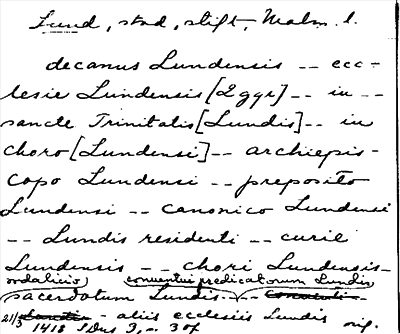 Lund, stad, stift, Malm. l.
decanus Lundensis -- ecc-
lesie Lundensis [2ggr] -- in --
sancte Trinitatis [Lundis] -- in
choro [Lundensi] -- archiepis-
copo Lundensi -- preposito
Lundensi -- canonico Lundensi
-- Lundis residenti -- curie
Lundensis -- chori Lundensis --
sodalicio conventui predicatorum Lundis
sacerdotum Lundis --
21/3 -- aliis ecclesiis Lundis
1418